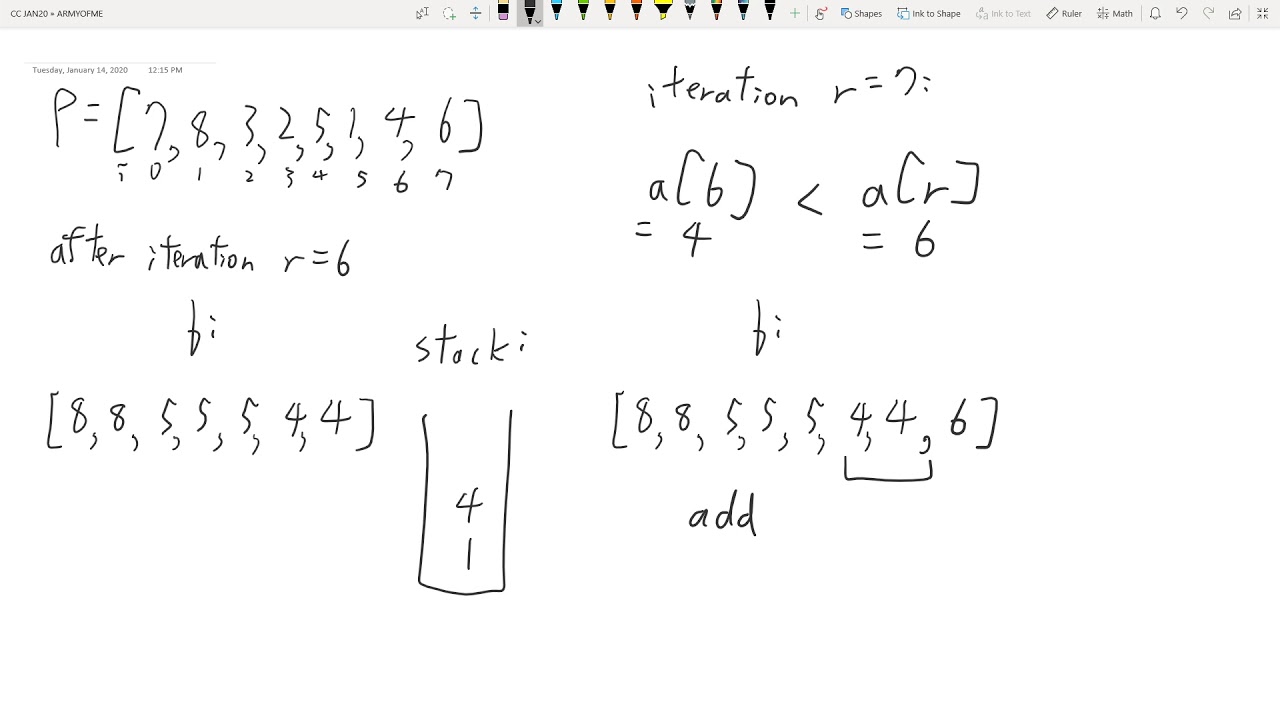 CC JAN20 » ARMYOFME
Shapes
Ink to Shape
Ink to Text
Ruler
Math
Tuesday, January 14, 2020 12:15 PM
P=[7,8,3,2,5,1,4,6]
i 0 1 2 3 4 5 6 7
after iteration r=6
b:
stack:
[8,8,5,5,5,4,4]
4
1
iteration r=7:
a[6] < a[r]
= 4 = 6
b:
[8,8,5,5,5,4,4,6]
add